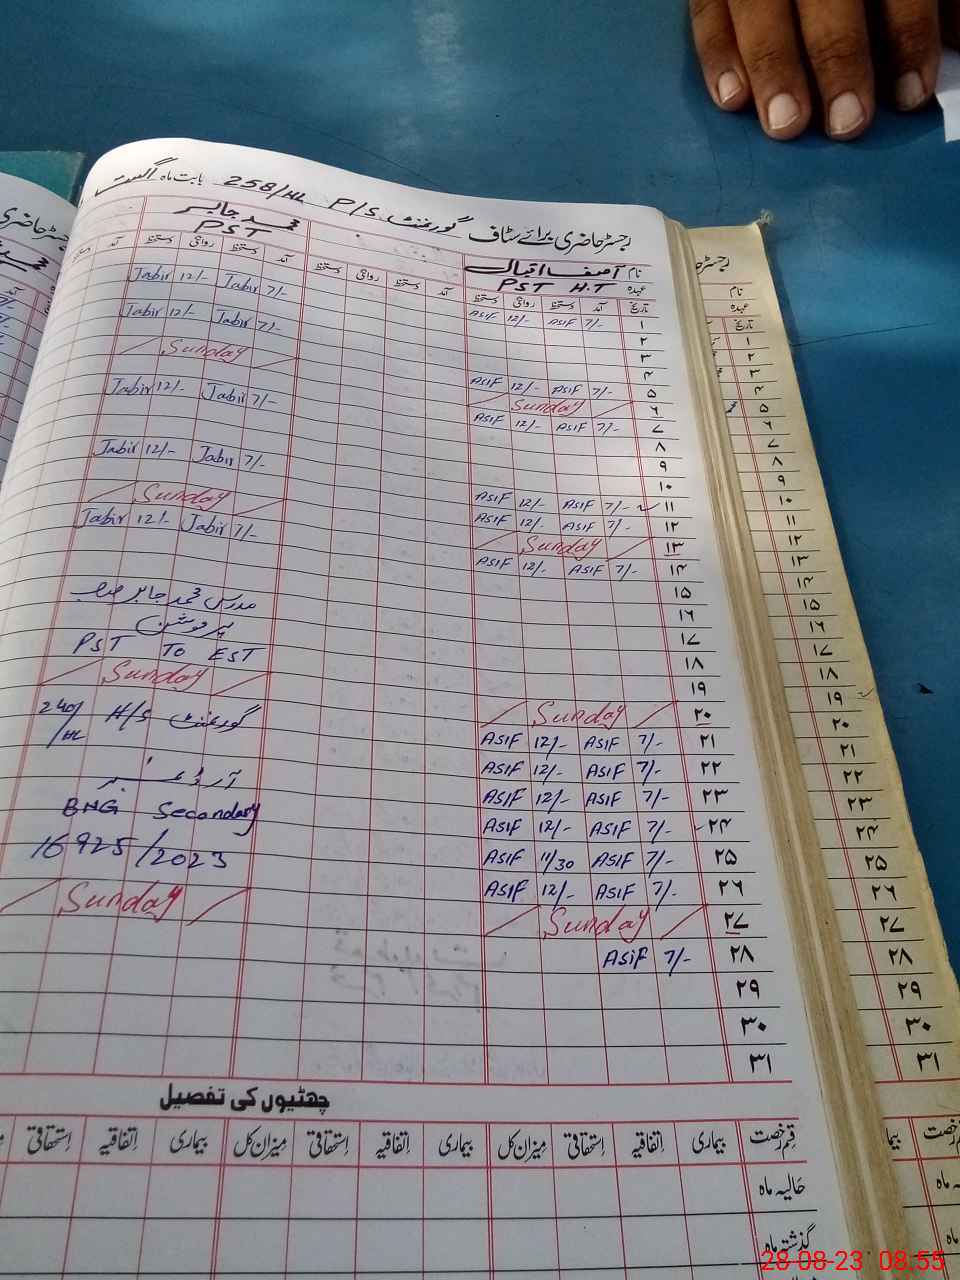 رجسٹر حاضری برائے سٹاف گورنمنٹ P/S 258/HL بابت ماہ اگست
نام آصف اقبال محمد جابر
عہدہ PST H.T PST
تاریخ آمد دستخط روانگی دستخط آمد دستخط روانگی دستخط آمد دستخط روانگی دستخط
۱ 7/- ASIF 12/- ASIF 7/- Jabir 12/- Jabir
۲
۳ 7/- Jabir 12/- Jabir
۴ Sunday
۵ 7/- ASIF 12/- ASIF 7/- Jabir 12/- Jabir
۶ Sunday
۷ 7/- ASIF 12/- ASIF
۸ 7/- Jabir 12/- Jabir
۹
۱۰ Sunday
۱۱ 7/- ASIF 12/- ASIF 7/- Jabir 12/- Jabir
۱۲ 7/- ASIF 12/- ASIF
۱۳ Sunday
۱۴ 7/- ASIF 12/- ASIF
۱۵ مدرس محمد جابر صاحب
۱۶ پروموشن
۱۷ PST TO EST
۱۸ Sunday
۱۹
۲۰ Sunday گورنمنٹ H/S 240/HL
۲۱ 7/- ASIF 12/- ASIF
۲۲ 7/- ASIF 12/- ASIF آرڈر نمبر
۲۳ 7/- ASIF 12/- ASIF BHG Secondary
۲۴ 7/- ASIF 12/- ASIF 16925/2023
۲۵ 7/- ASIF 11/30 ASIF
۲۶ 7/- ASIF 12/- ASIF Sunday
۲۷ Sunday
۲۸ 7/- ASIF
۲۹
۳۰
۳۱
چھٹیوں کی تفصیل
قسم رخصت بیماری اتفاقیہ استحقاقی میزان کل بیماری اتفاقیہ استحقاقی میزان کل بیماری اتفاقیہ استحقاقی
حالیہ ماہ
گذشتہ ماہ
نام
عہدہ
تاریخ
۱
۲
۳
۴
۵
۶
۷
۸
۹
۱۰
۱۱
۱۲
۱۳
۱۴
۱۵
۱۶
۱۷
۱۸
۱۹
۲۰
۲۱
۲۲
۲۳
۲۴
۲۵
۲۶
۲۷
۲۸
۲۹
۳۰
۳۱
28-08-23 08:55